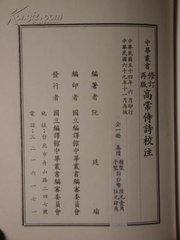 中華叢書
修訂再版
高常侍詩校注
中華民國五十四年六月印行
中華民國六十九年十一月再版
全一冊
編著者 阮廷瑜
編印者 國立編譯館中華叢書編審委員會
發行者 國立編譯館中華叢書編審委員會
地址：台北市舟山路二四七號
電話：三二一六一七一